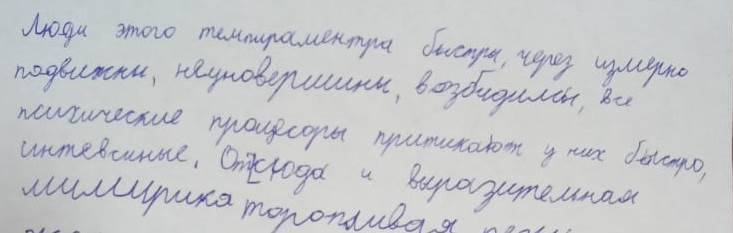 Люди этого темпираментра быстры, через измерно
подвижны, неуновершины, возбидимы, все
психические процесоры притикают у них быстро,
интевсиные. Отсюда и выразительная
мимирика торопливая